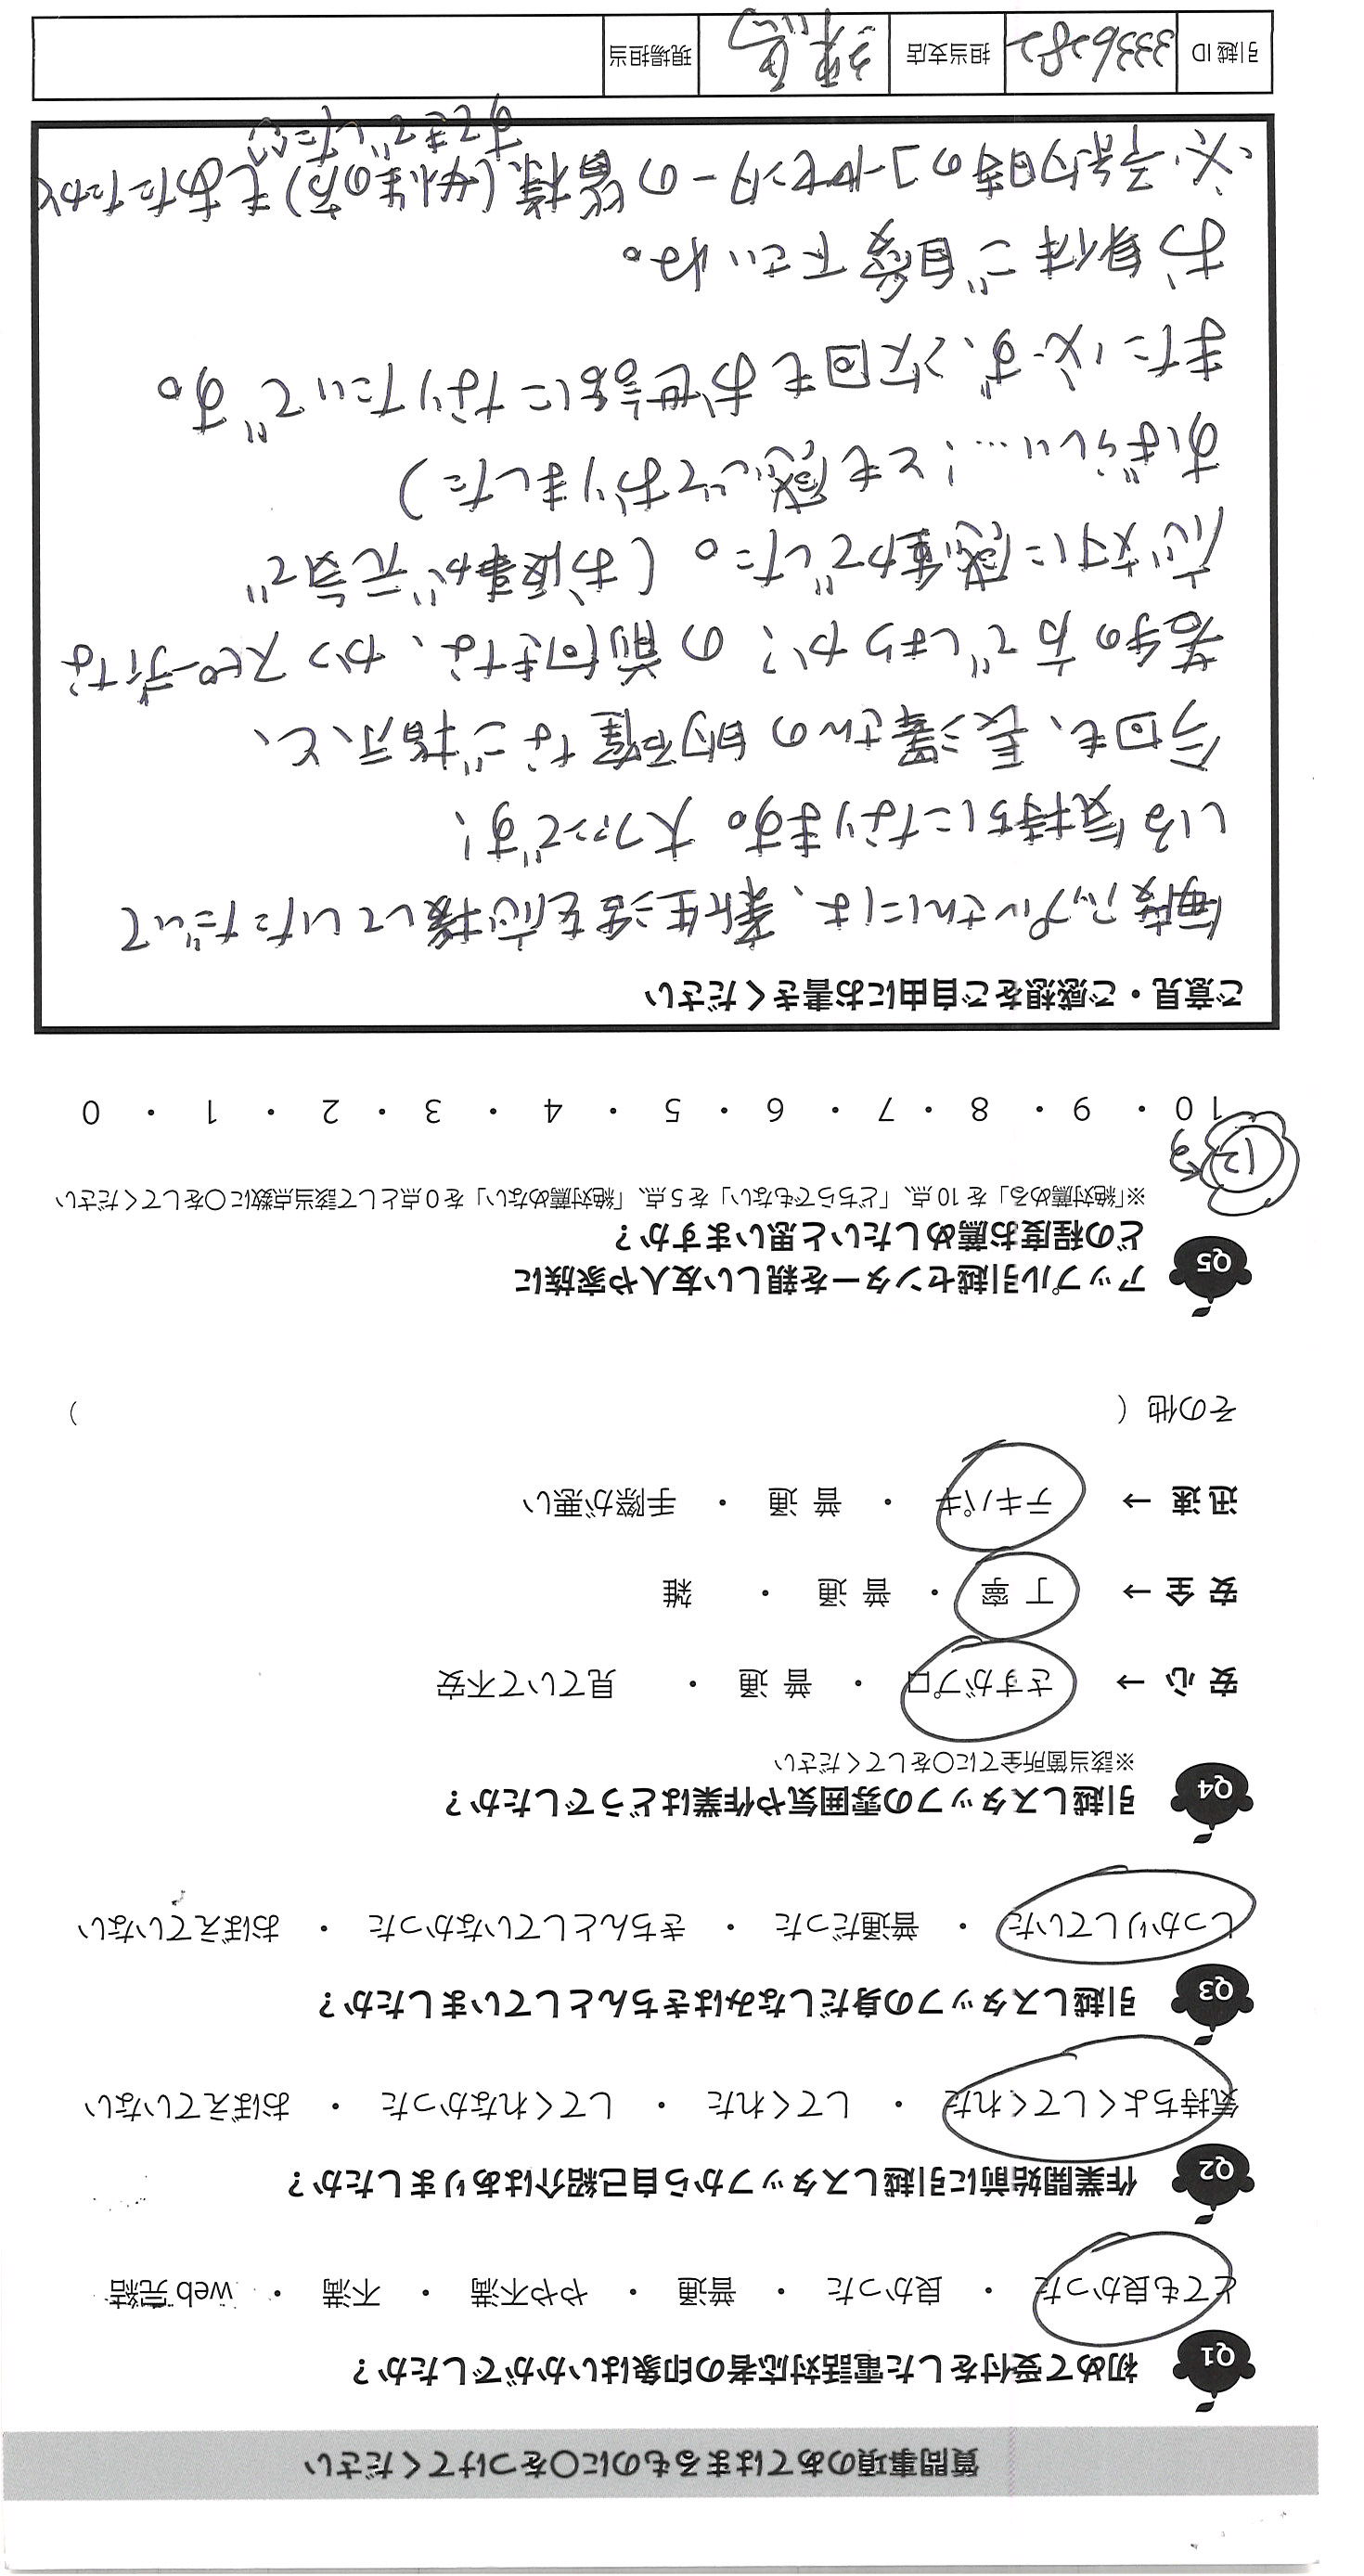 質問事項のあてはまるものに〇をつけてください
Q1 初めて受付をした電話対応者の印象はいかがでしたか？
とても良かった ・ 良かった ・ 普通 ・ やや不満 ・ 不満 ・ web 完結
Q2 作業開始前に引越しスタッフから自己紹介はありましたか？
気持ちよくしてくれた ・ してくれた ・ してくれなかった ・ おぼえていない
Q3 引越しスタッフの身だしなみはきちんとしていましたか？
しっかりしていた ・ 普通だった ・ きちんとしていなかった ・ おぼえていない
Q4 引越しスタッフの雰囲気や作業はどうでしたか？
※該当箇所全てに〇をしてください
安 心 → さすがプロ ・ 普 通 ・ 見ていて不安
安 全 → 丁 寧 ・ 普 通 ・ 雑
迅 速 → テキパキ ・ 普 通 ・ 手際が悪い
その他（ ）
Q5 アップル引越センターを親しい友人や家族に
どの程度お薦めしたいと思いますか？
※「絶対薦める」を 10 点、「どちらでもない」を 5 点、「絶対薦めない」を 0 点として該当点数に〇をしてください
12
10 ・ 9 ・ 8 ・ 7 ・ 6 ・ 5 ・ 4 ・ 3 ・ 2 ・ 1 ・ 0
ご意見・ご感想をご自由にお書きください
毎度アップルさんには、新生活を応援していただいて
いる気持ちになります。大ファンです！
今回も、長澤さんの的確なご指示と、
若手の方でしょうか？の前向きな、かつスピーディな
応対に感動でした。（お返事が元気で
すばらしい…！とも感じておりました）
また必ず、次回もお世話になりたいです。
お身体ご自愛下さいね。
※予約時のコールセンターの皆様（女性の方）もあたたかく
すてきでした♡
引越 ID 3336282 担当支店 練馬 現場担当